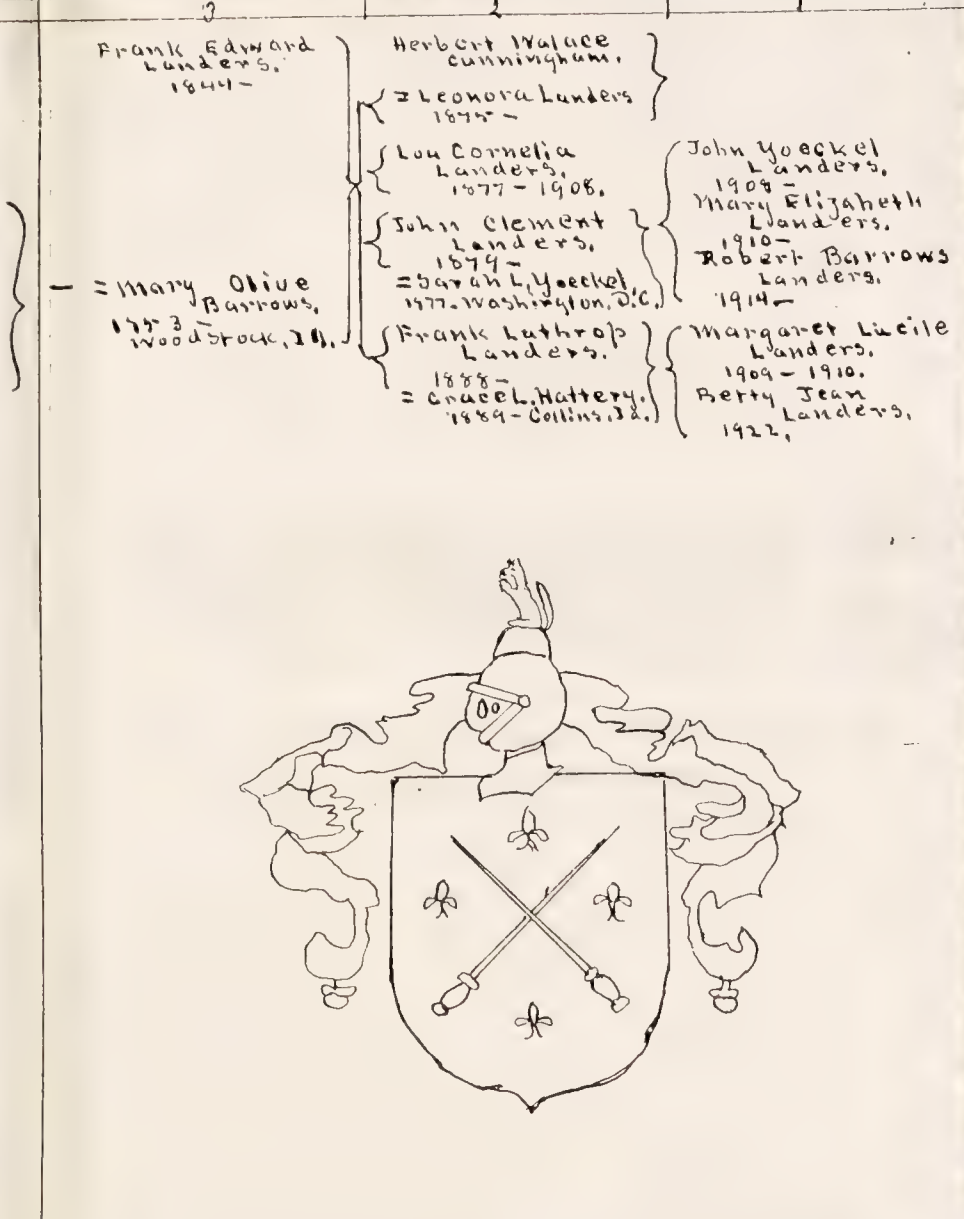 3
2
1
Frank Edward
Landers.
1844-
= Mary Olive
Barrows.
1853-
Woodstock, Ill.
Herbert Walace
Cunningham.
= Leonora Landers
1875-
Lou Cornelia
Landers.
1877-1908.
John Clement
Landers.
1879-
= Sarah L. Yoeckel.
1877-Washington, D.C.
Frank Lathrop
Landers.
1888-
= Grace L. Hattery.
1889-Collins, Ia.
John Yoeckel
Landers.
1908-
Mary Elizabeth
Landers.
1910-
Robert Barrows
Landers.
1914-
Margaret Lucile
Landers.
1909-1910.
Betty Jean
Landers.
1922.